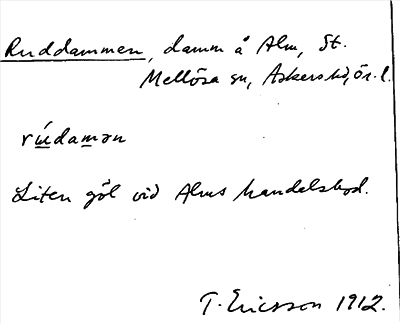 Ruddammen, damm å Alm, St.
Mellösa sn, Askers hd, Ör. l.
rúdamən
Liten göl vid Alms handelsbod.
T. Ericsson 1912.